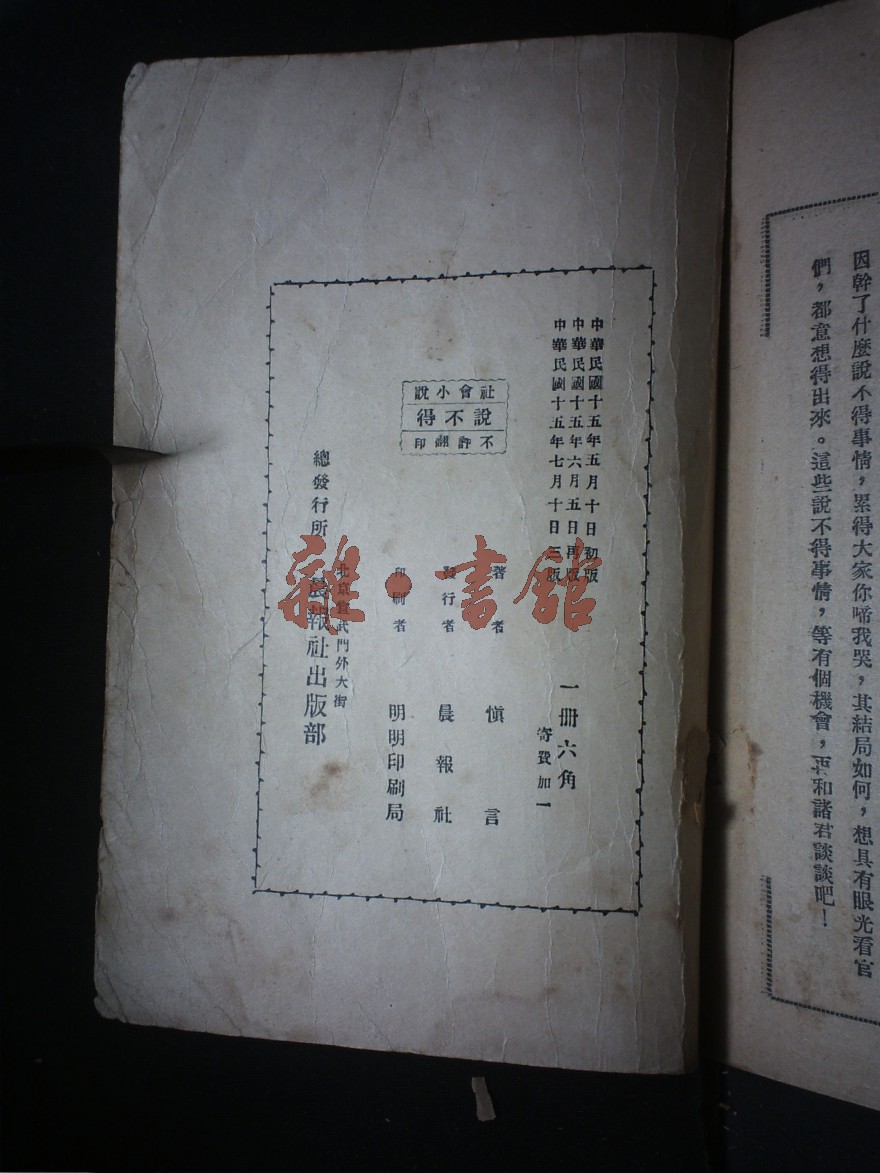 因幹了什麽說不得事情，累得大家你啼我哭，其結局如何，想具有眼光看官
們，都意想得出來。這些說不得事情，等有個機會，再和諸君談談吧！
中華民國十五年五月十日初版
中華民國十五年六月五日再版
中華民國十五年七月十日三版
一冊六角
寄費加一
社會小說
說不得
不許翻印
著者 愼言
發行者 晨報社
印刷者 明明印刷局
北京宣武門外大街
總發行所 晨報社出版部
雜·書館